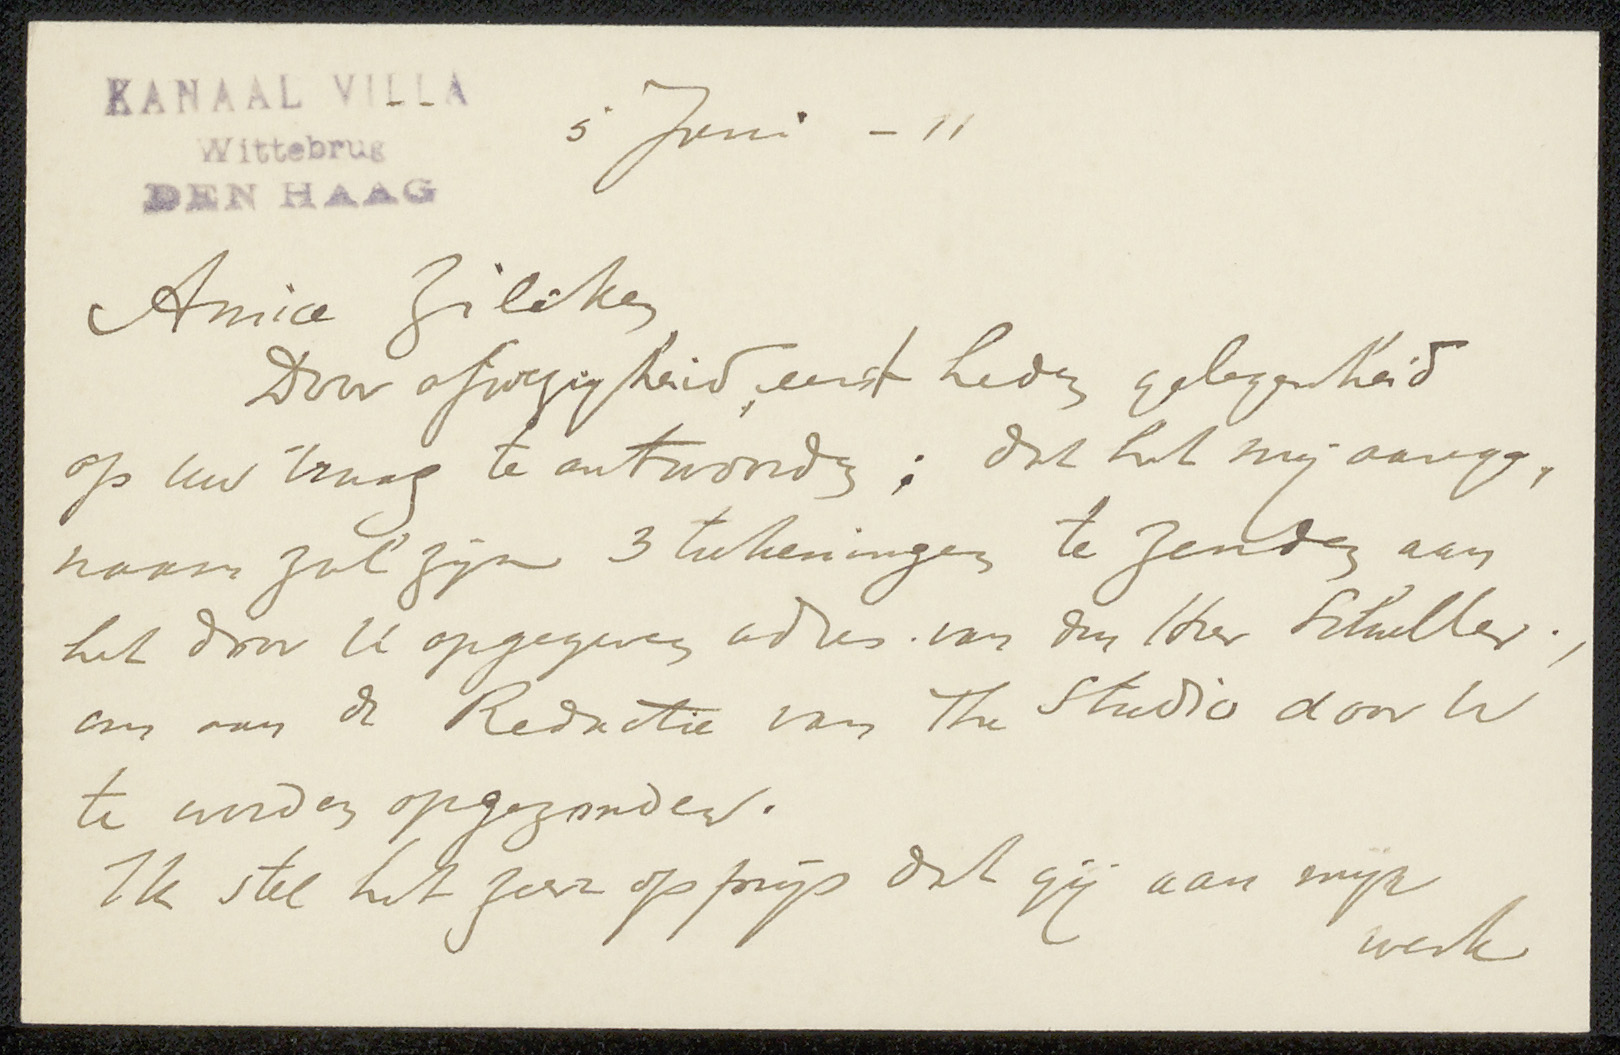 KANAAL VILLA
Wittebrug
DEN HAAG
5 Juni - 11
Amice Zilcken
Door afwezigheid, eerst heden gelegenheid
op uw vraag te antwoorden; dat het mij aange,
naam zal zijn 3 teekeningen te zenden aan
het door U opgegeven adres van den Heer Schuller.,
om aan de Redactie van The Studio door U
te worden opgezonden.
Ik stel het zeer op prijs dat gij aan mijn
werk